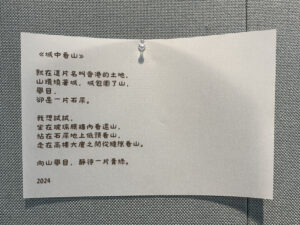 《城中看山》
就在這片名叫香港的土地，
山環繞著城，城包圍了山，
舉目，
卻是一片石屎。
我想試試，
坐在玻璃幕牆內看遠山，
站在石屎地上低頭看山，
走在高樓大廈之間從縫隙看山。
向山舉目，靜待一片青綠。
2024